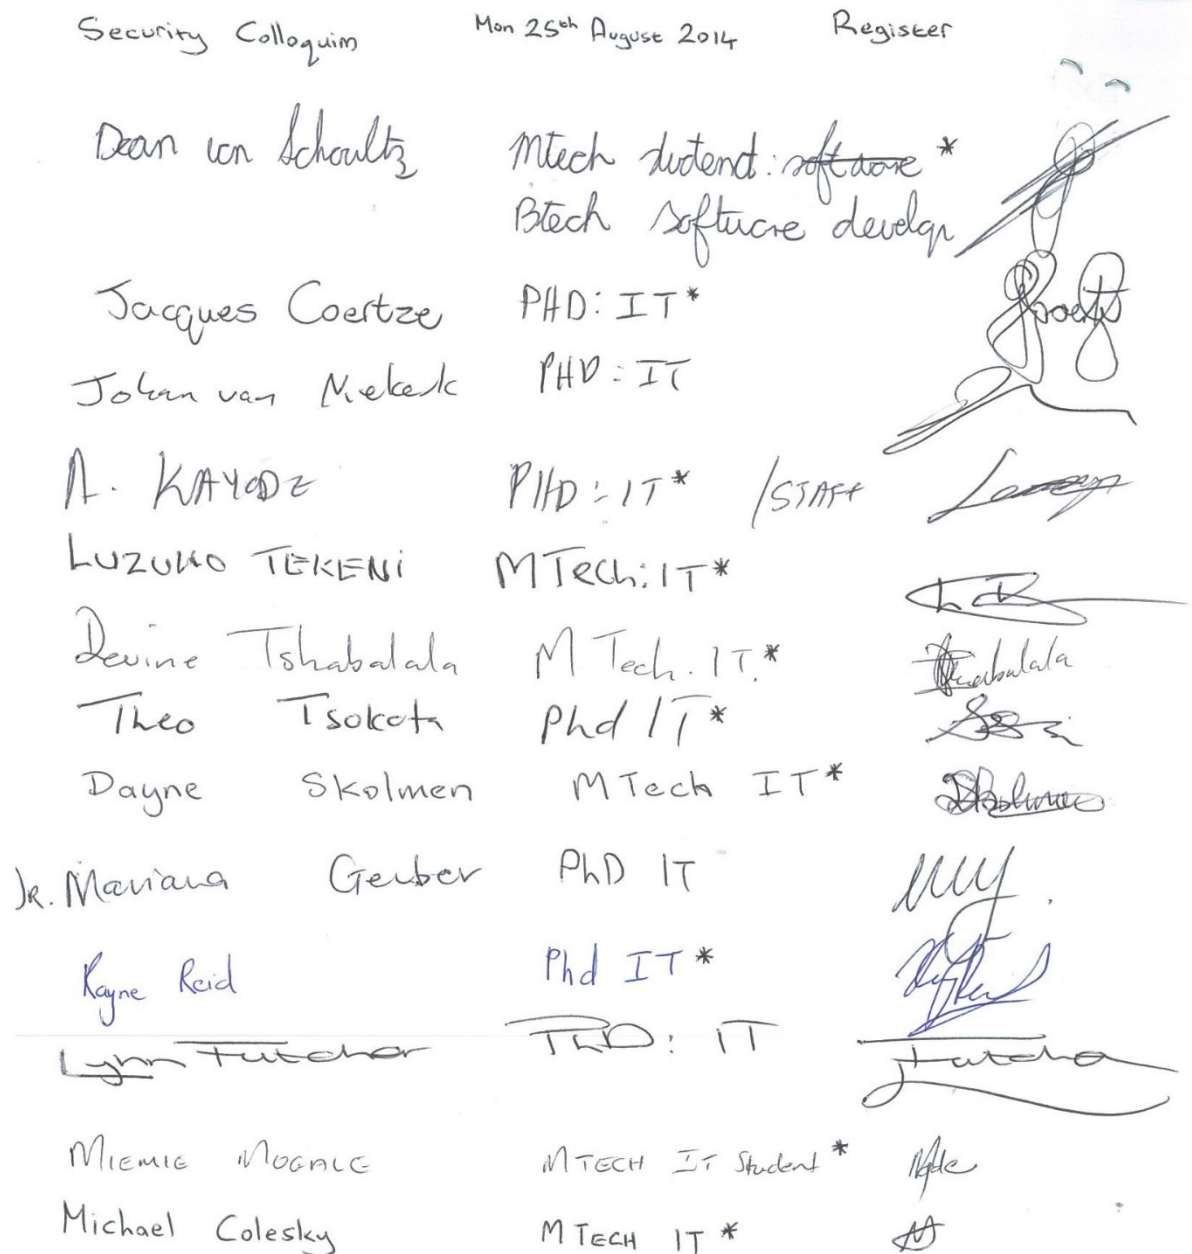 Security Colloquim Mon 25th August 2014 Register
Dean von Schoultz Mtech student: software *
Btech software develop
Jacques Coertze PHD: IT*
Johan van Niekerk PHD: IT
A. KAYODE PHD: IT* /STAFF
LUZUKO TEKENI MTech: IT*
Devine Tshabalala M Tech. IT.* Tshabalala
Theo Tsokota Phd IT*
Dayne Skolmen MTech IT* DSkolmen
Dr. Mariana Gerber PhD IT
Rayne Reid Phd IT*
Lynn Futcher PhD: IT Futcher
MIEMIE MOGALE MTECH IT Student*
Michael Colesky MTECH IT *